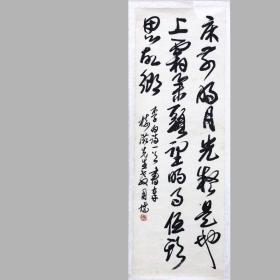 床前明月光疑是地
上霜举头望明月低头
思故乡
李白诗一首书奉